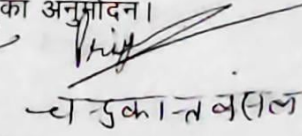 का अनुमोदन।
चन्द्रकान्त बंसल